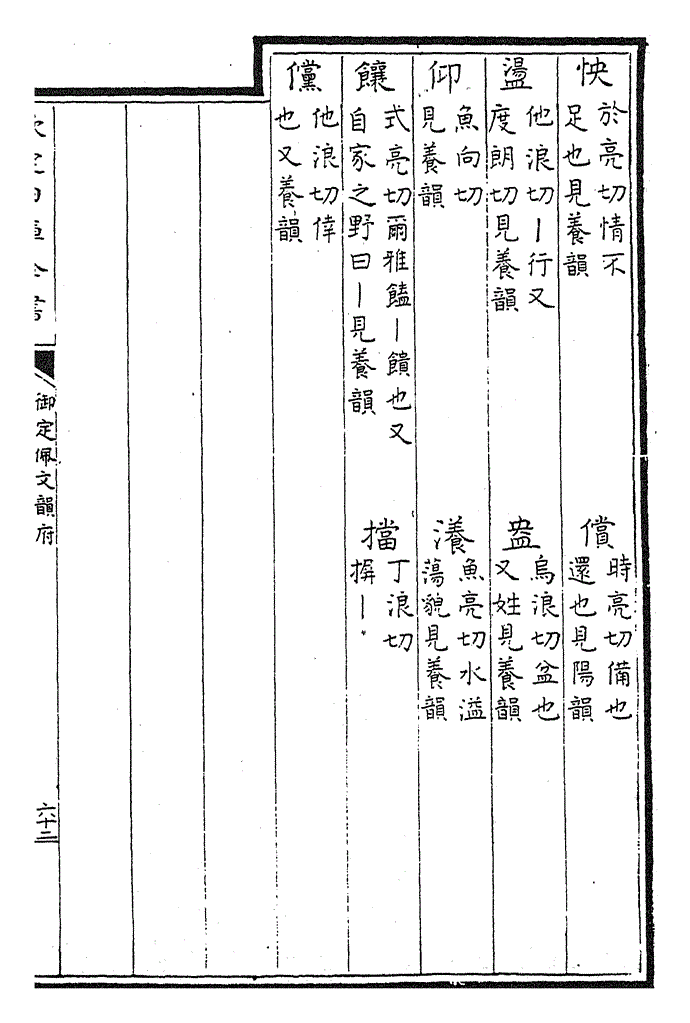 怏於亮切情不足也見養韻 償時亮切備也還也見陽韻
盪他浪切丨行又度朗切見養韻 盎烏浪切盆也又姓見養韻
仰魚向切見養韻 瀁魚亮切水溢蕩貌見養韻
饟式亮切爾雅饁丨饋也又自家之野曰丨見養韻 擋丁浪切摒丨
儻他浪切倖也又養韻
御定佩文韻府
六十二